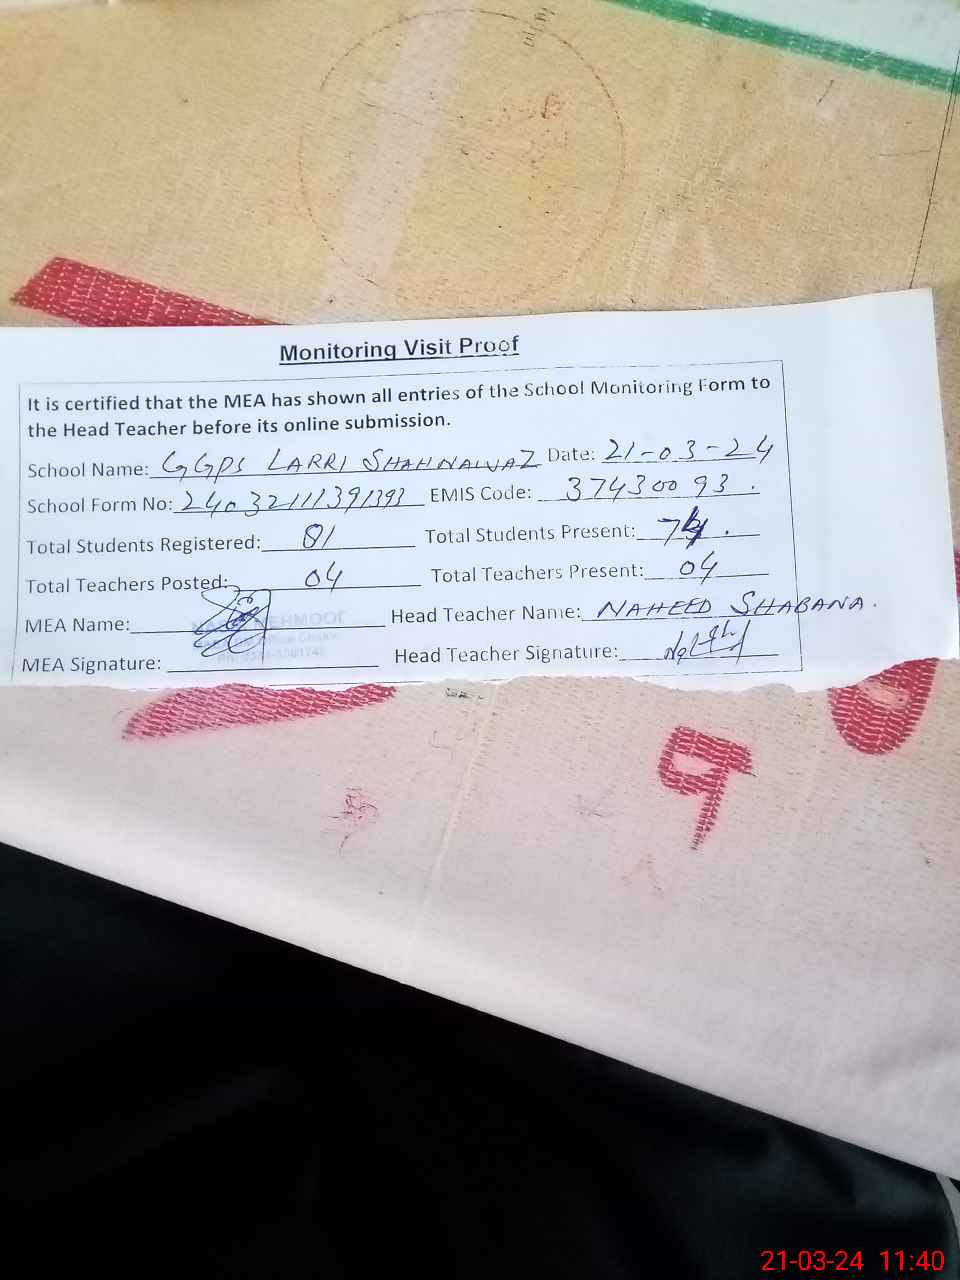 Monitoring Visit Proof
It is certified that the MEA has shown all entries of the School Monitoring Form to
the Head Teacher before its online submission.
School Name: GGPS LARRI SHAHNAWAZ Date: 21-03-24
School Form No: 24032111391393 EMIS Code: 37430093.
Total Students Registered: 81 Total Students Present: 74.
Total Teachers Posted: 04 Total Teachers Present: 04
MEA Name: Head Teacher Name: NAHEED SHABANA.
MEA Signature: Head Teacher Signature:
9
21-03-24 11:40